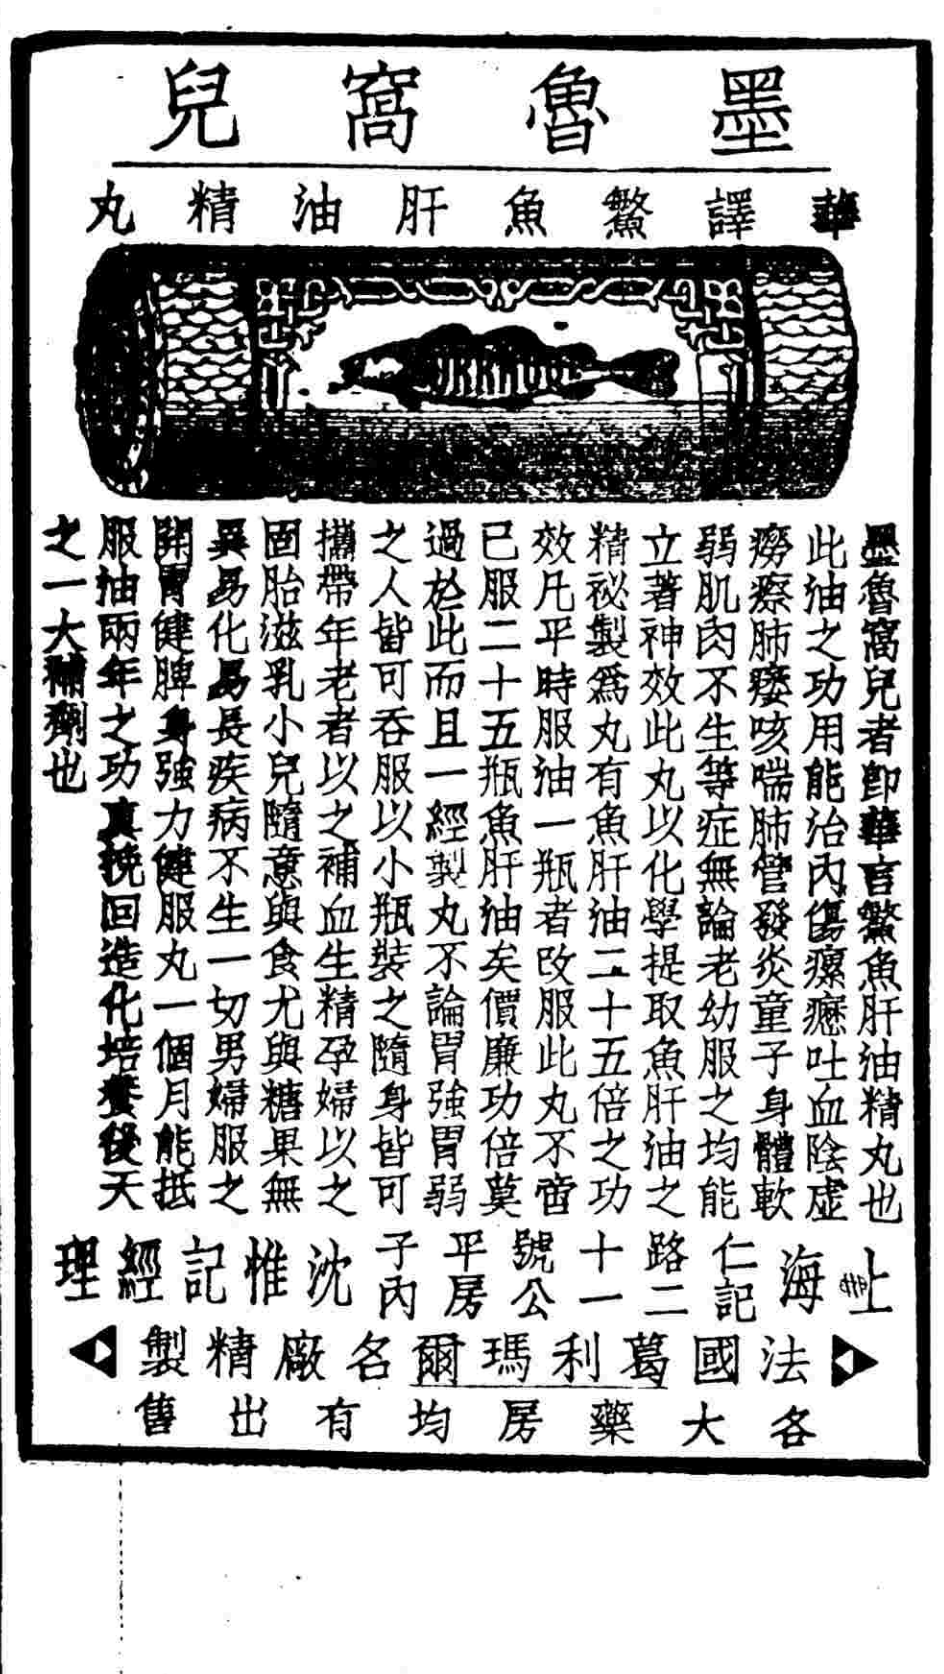 墨魯窩兒
華譯鱉魚肝油精丸
墨魯窩兒者卽華言鱉魚肝油精丸也
此油之功用能治內傷瘰癧吐血陰虛
癆瘵肺痿咳喘肺管發炎童子身體軟
弱肌肉不生等症無論老幼服之均能
立著神效此丸以化學提取魚肝油之
精祕製爲丸有魚肝油二十五倍之功
效凡平時服油一瓶者改服此丸不啻
已服二十五瓶魚肝油矣價廉功倍莫
過於此而且一經製丸不論胃強胃弱
之人皆可吞服以小瓶裝之隨身皆可
攜帶年老者以之補血生精孕婦以之
固胎滋乳小兒隨意與食尤與糖果無
異易化易長疾病不生一切男婦服之
開胃健脾身強力健服丸一個月能抵
服油兩年之功真挽回造化培養後天
之一大補劑也
上海仁記路二十一號公平房子內沈惟記經理
法國葛利瑪爾名廠精製
各大藥房均有出售